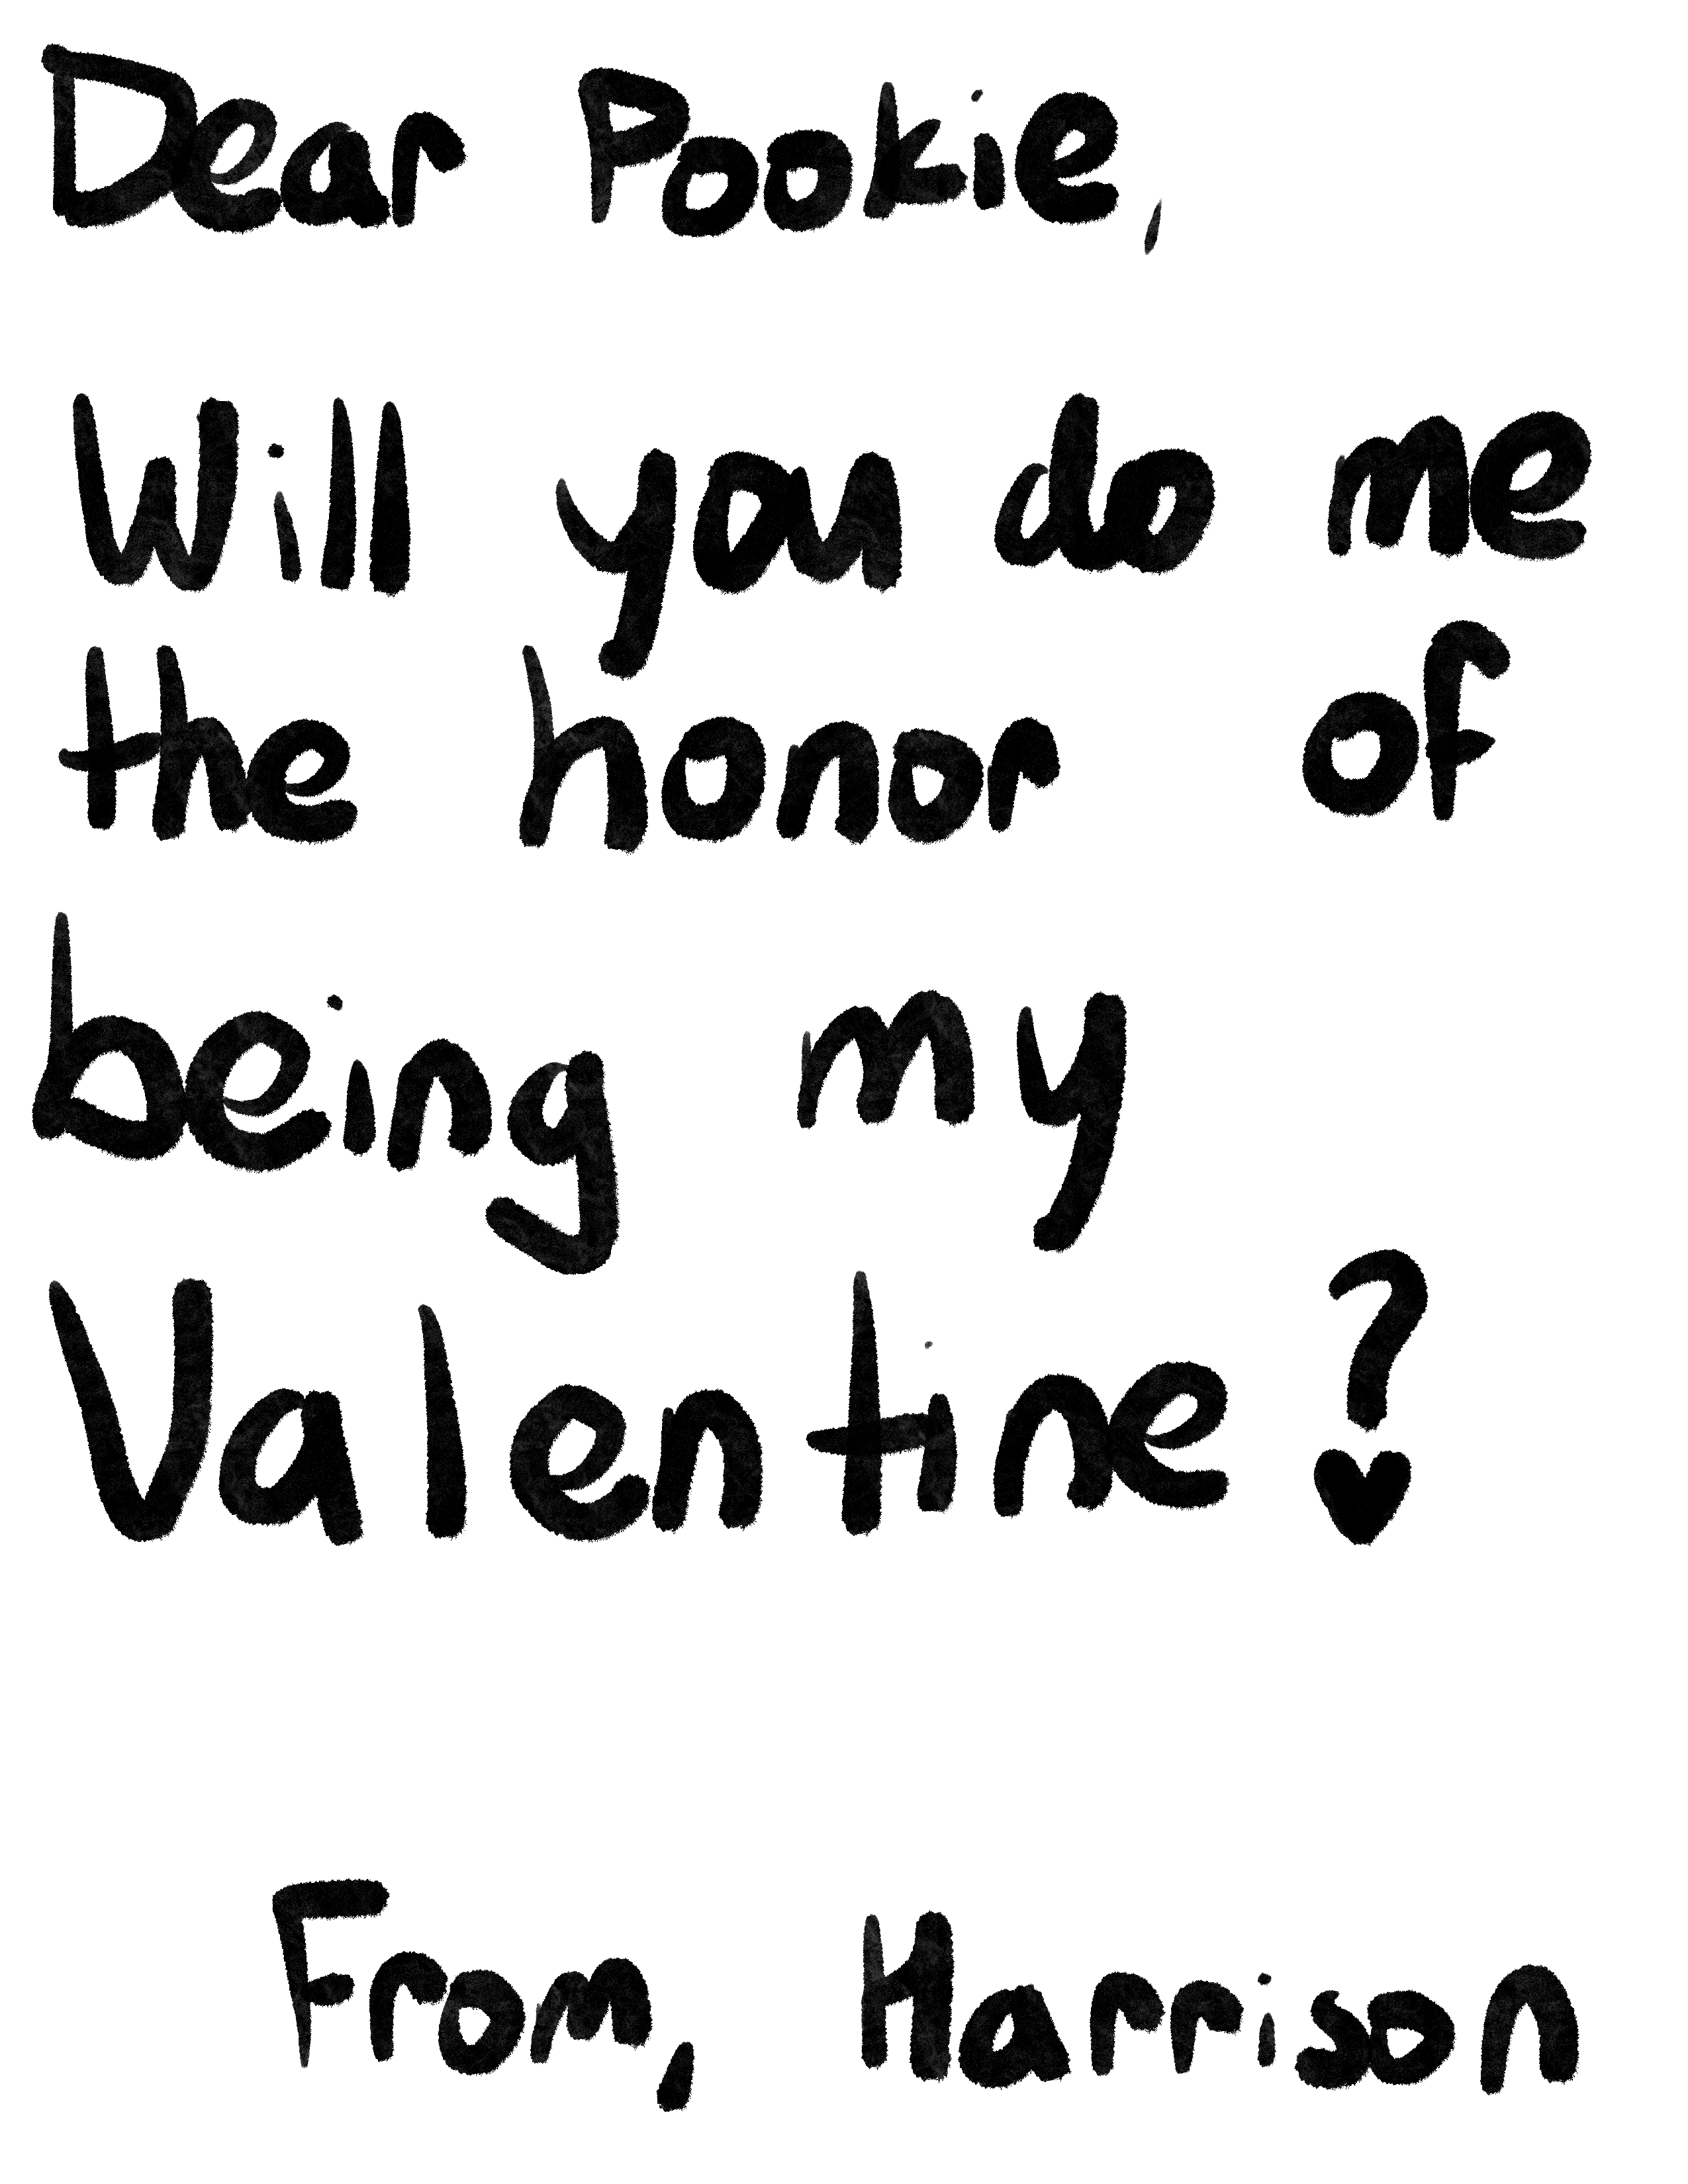 Dear Pookie,
Will you do me
the honor of
being my
Valentine?
From, Harrison